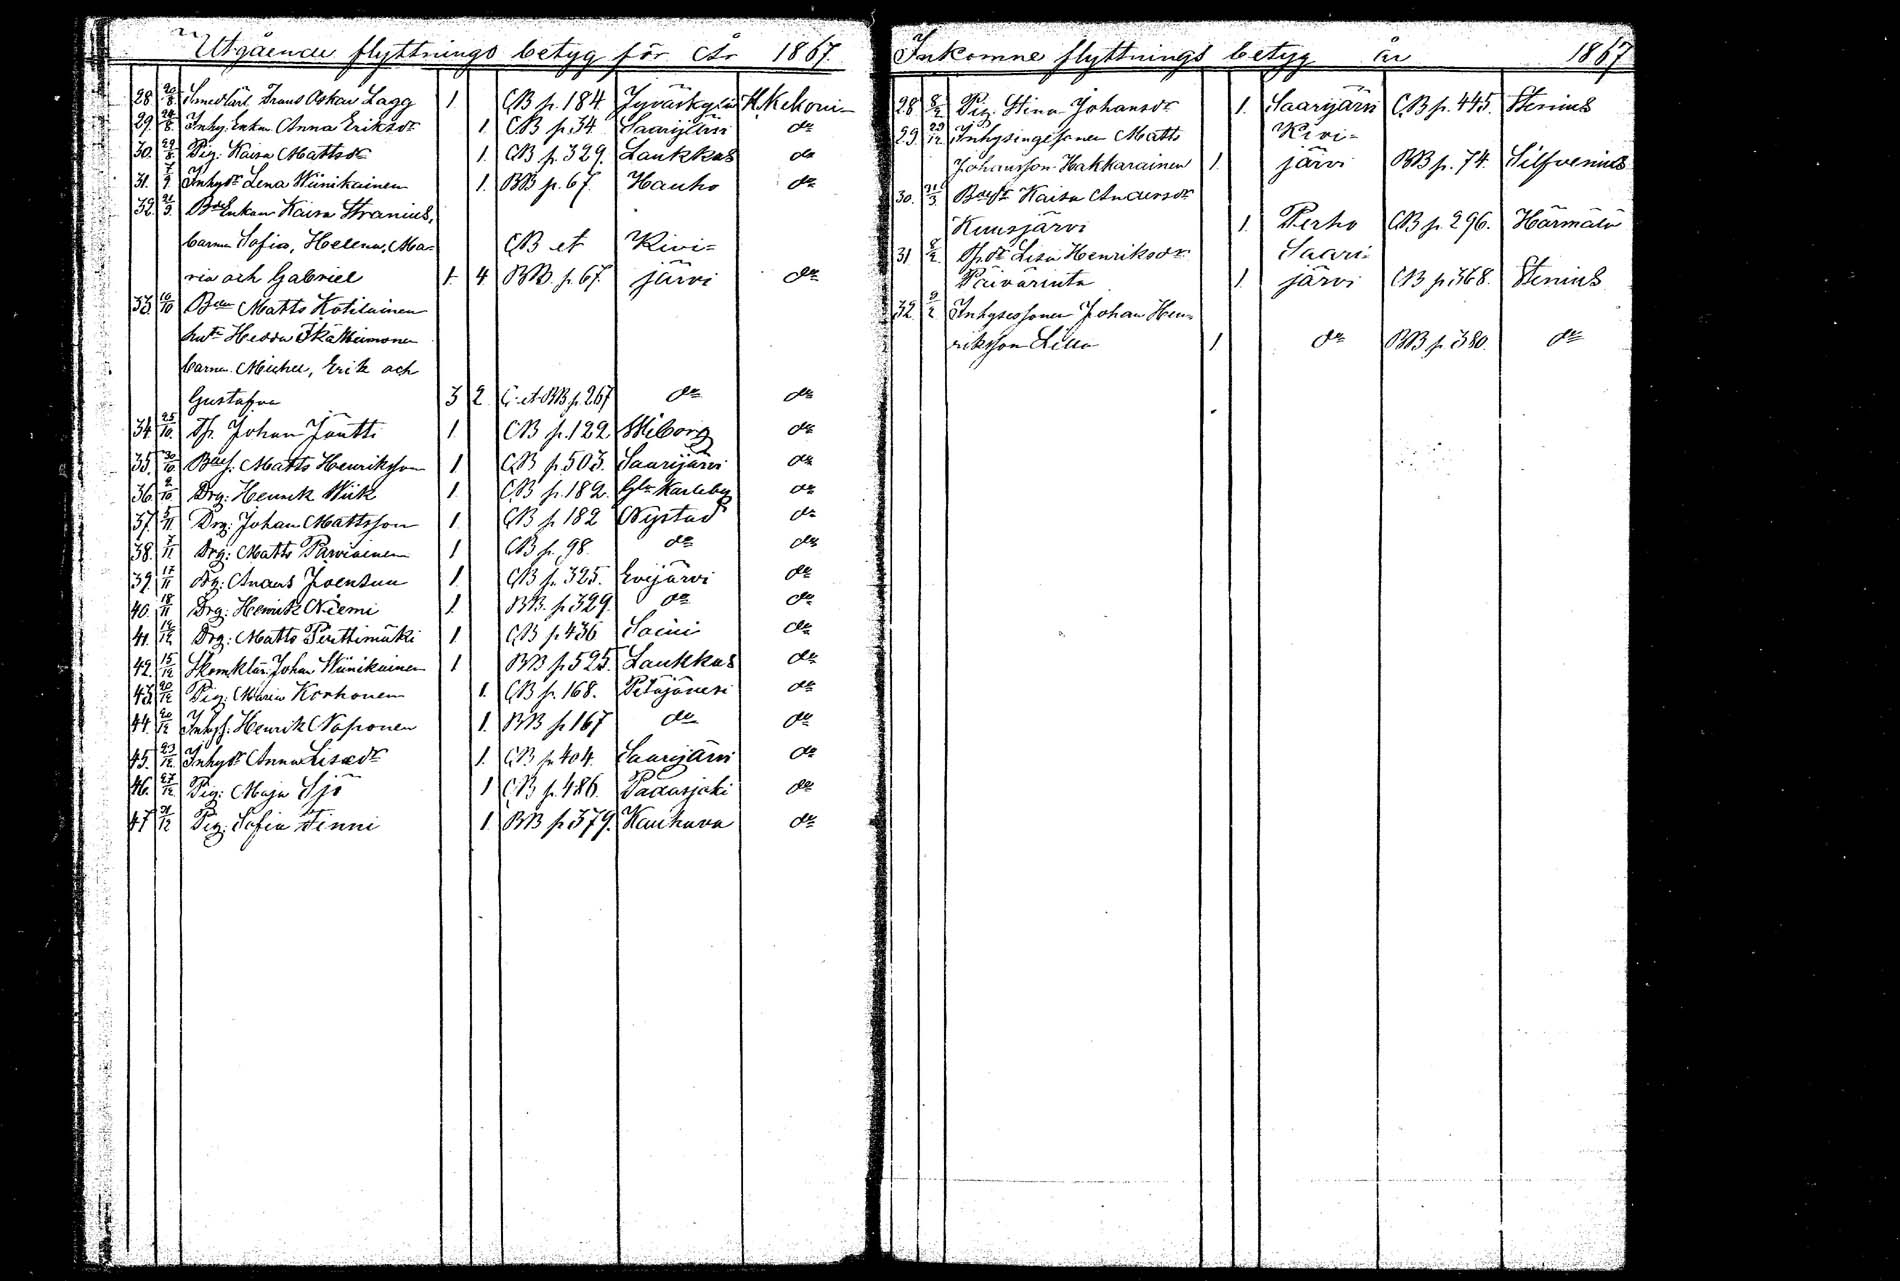 Utgående flyttnings betyg för År 1867.
28. 20/8. Smedlärl. Frans Oskar Lagg 1 CB p. 184 Jyväskylä K. Kekoni
29. 24/8. Inhy: Enkan Anna Eriksdr 1. CB p. 34 Saarijärvi do
30. 29/8 Pig: Kaisa Mattsdr 1. CB p. 329. Laukkas do
31. 7/9. Inhydr Lena Wiinikainen 1. BB p. 67. Hauho do
32. 21/9. Bdes Enkan Kaisa Stranius,
barnen Sofia, Helena, Ma- CB et Kivi-
ria och Gabriel 1 4 BB. p. 67. järvi do
33. 10/10 Bden Matts Kotilainen
hust Hedda Ikäheimonen
barnen Michel, Erik och
Gustafva 3 2 C: et BB p. 267 do do
34. 25/10. Dr. Johan Jäntti 1 CB p. 122 Wiborg do
35. 30/10. Bdes: Matts Henriksson 1 CB p. 503. Saarijärvi do
36. 2/10. Drg: Henrik Wiik 1. CB p. 182. Gla Karleby do
37. 5/11 Drg: Johan Mattsson 1. CB p 182 Nystad do
38. 7/11 Drg: Matts Parviainen 1 CB p. 98. do do
39. 17/11 Drg: Anders Joensuu 1. CB p. 325. Evijärvi do
40. 18/11 Drg: Henrik Niemi 1. BB. p. 329. do do
41. 14/12. Drg: Matts Perttimäki 1. CB p 436 Soini do
42. 15/12 Skomklär: Johan Wiinikainen 1 BB p 525. Laukkas do
43. 20/12 Pig: Maria Korhonen 1. CB p. 168. Pitäjävesi do
44. 20/12 Inhys: Henrik Noponen 1. BB p 167 do do
45. 23/12. Inhydr Anna Lisadr 1. CB p. 404. Saarijärvi do
46. 27/12. Pig: Maja Sjö 1 CB p. 486. Padasjoki do
47 31/12 Pig: Sofia Finni 1. BB p 379. Kauhava do
Inkomne flyttnings betyg år 1867
28 8/2 Pig: Stina Johansdr 1. Saarijärvi CB p. 445. Stenius
29. 29/12. Inhysingesonen Matts Kivi-
Johansson Hakkarainen 1. järvi BB p. 74. Silfvenius
30. 21/3. Bdesdr Kaisa Andersdr
Kuusjärvi 1. Perho CB p. 296. Härmälä
31 8/2. Tpdr Lisa Henriksdr Saari
Päivärinta 1. järvi CB p 368. Stenius
32. 9/2 Inhysessonen Johan Hen-
riksson Lilla 1 do BB p. 380. do